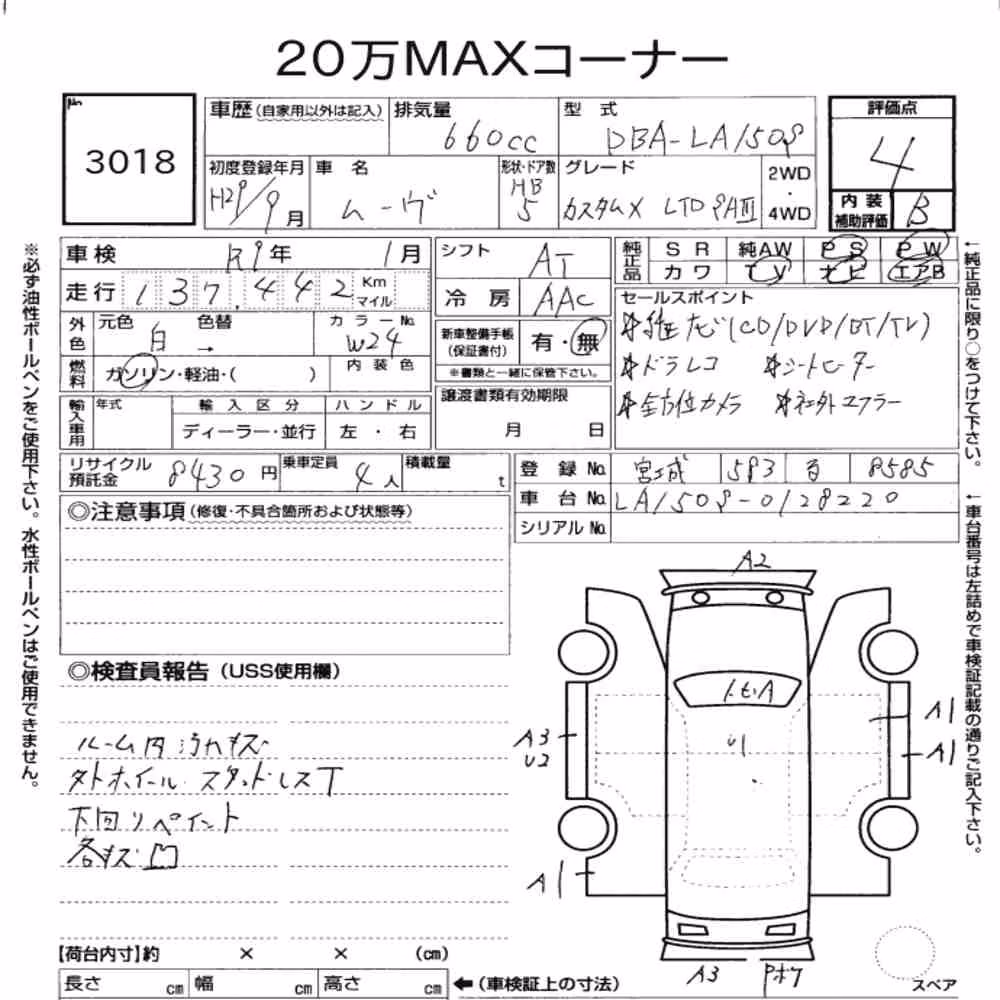 20万MAXコーナー
3018
車歴(自家用以外は記入)
排気量
660cc
型式
DBA-LA150S
評価点
4
初度登録年月
H29/9月
車名
ムーヴ
形状・ドア数
HB
5
グレード
カスタムX LTD SAⅢ
2WD
・
4WD
内装
補助評価
B
車検
R9年 1月
走行 137,442 Km
マイル
外色
元色
白
色替
→
カラーNo.
W24
燃料
ガソリン・軽油・( )
内装色
輸入車用
年式
輸入区分
ディーラー・並行
ハンドル
左・右
シフト
AT
冷房
AAC
新車整備手帳
(保証書付)
有・無
※書類と一緒に保管下さい。
譲渡書類有効期限
月 日
純正品
SR 純AW PS PW
カワ TV ナビ エアB
セールスポイント
*純正ナビ(CD/DVD/BT/TV)
*ドラレコ *シートヒーター
*全方位カメラ *社外マフラー
リサイクル
預託金
8430円
乗車定員
4人
積載量
t
登録No.
宮城 583 る 8585
車台No.
LA150S-0128220
シリアルNo.
◎注意事項(修復・不具合箇所および状態等)
◎検査員報告(USS使用欄)
ルーム内汚れキズ
タトホイール・スタッドレスT
下回リペイント
各キズ凹
【荷台内寸】約 × × (cm)
長さ cm 幅 cm 高さ cm
←(車検証上の寸法)
A2
トビA
U1
A3
U2
A1
A1
A1
A3
スペア
※必ず油性ボールペンをご使用下さい。水性ボールペンはご使用できません。
←純正品に限り○をつけて下さい。
←車台番号は左詰めで車検証記載の通りご記入下さい。